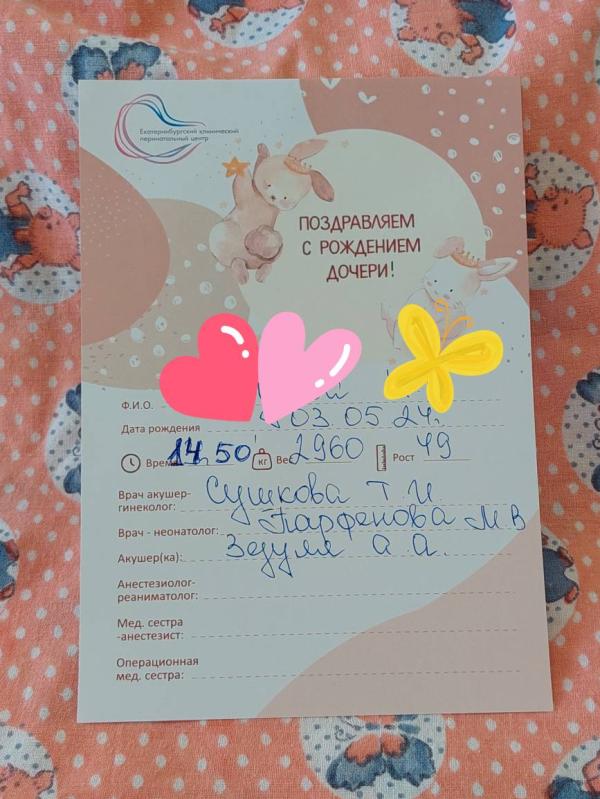 Екатеринбургский клинический
перинатальный центр
ПОЗДРАВЛЯЕМ
С РОЖДЕНИЕМ
ДОЧЕРИ!
Ф.И.О.
Дата рождения 03.05.24г.
Время 14 50 кг Вес 2960 Рост 49
Врач акушер-
гинеколог: Сушкова Т. И.
Врач - неонатолог: Парфенова М. В
Акушер(ка): Зезуля А. А.
Анестезиолог-
реаниматолог:
Мед. сестра
-анестезист:
Операционная
мед. сестра: